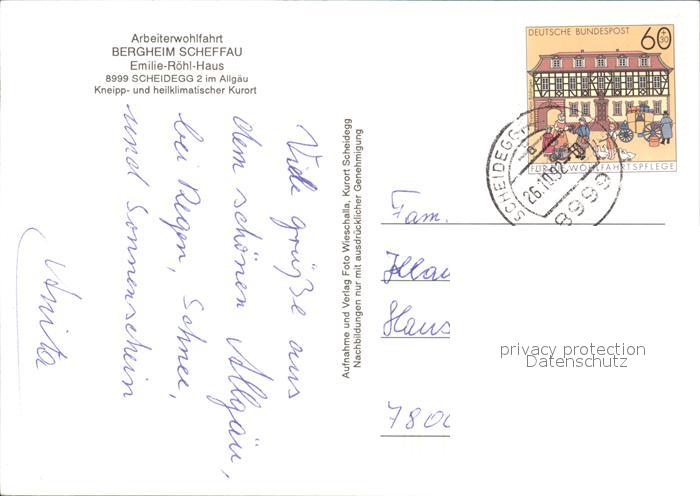 Arbeiterwohlfahrt
BERGHEIM SCHEFFAU
Emilie-Röhl-Haus
8999 SCHEIDEGG 2 im Allgäu
Kneipp- und heilklimatischer Kurort
Viele grüße aus
dem schönen Allgäu,
bei Regen, Schnee,
und Sonnenschein
Anita
Aufnahme und Verlag Foto Wieschalla, Kurort Scheidegg
Nachbildungen nur mit ausdrücklicher Genehmigung
DEUTSCHE BUNDESPOST
60+30
FÜR DIE WOHLFAHRTSPFLEGE
SCHEIDEGG
26.10.92
8999
Fam.
Klau
Haus
7800
privacy protection
Datenschutz